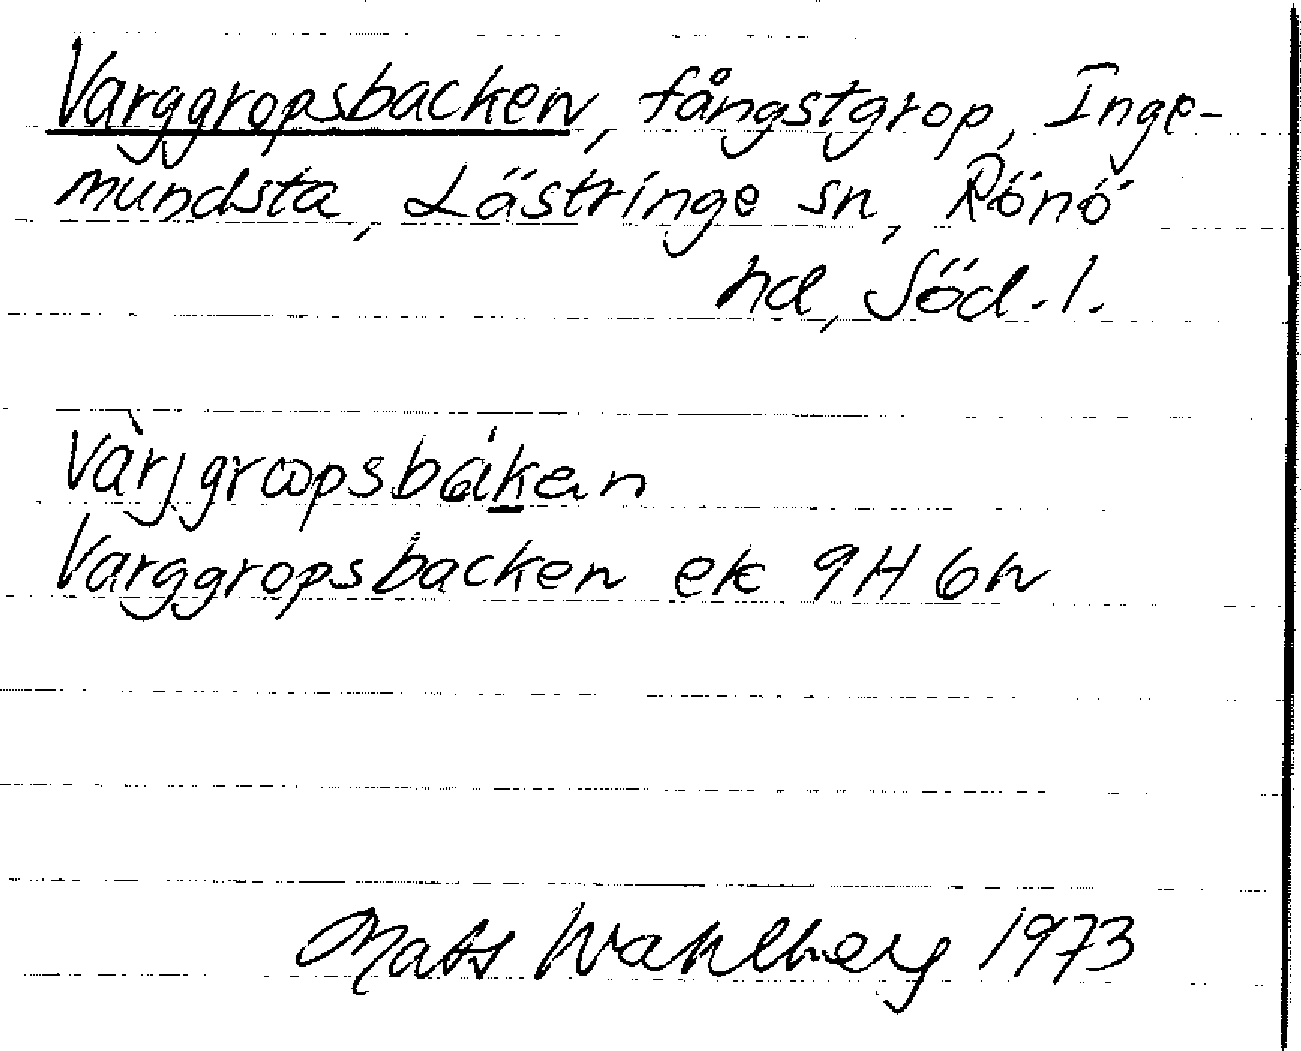 Varggropsbacken, fångstgrop, Inge-
mundsta, Lästringe sn, Rönö
hd, Söd. l.
Vàrjgroopsbákan
Varggropsbacken ek 9H 6h
Mats Wahlberg 1973